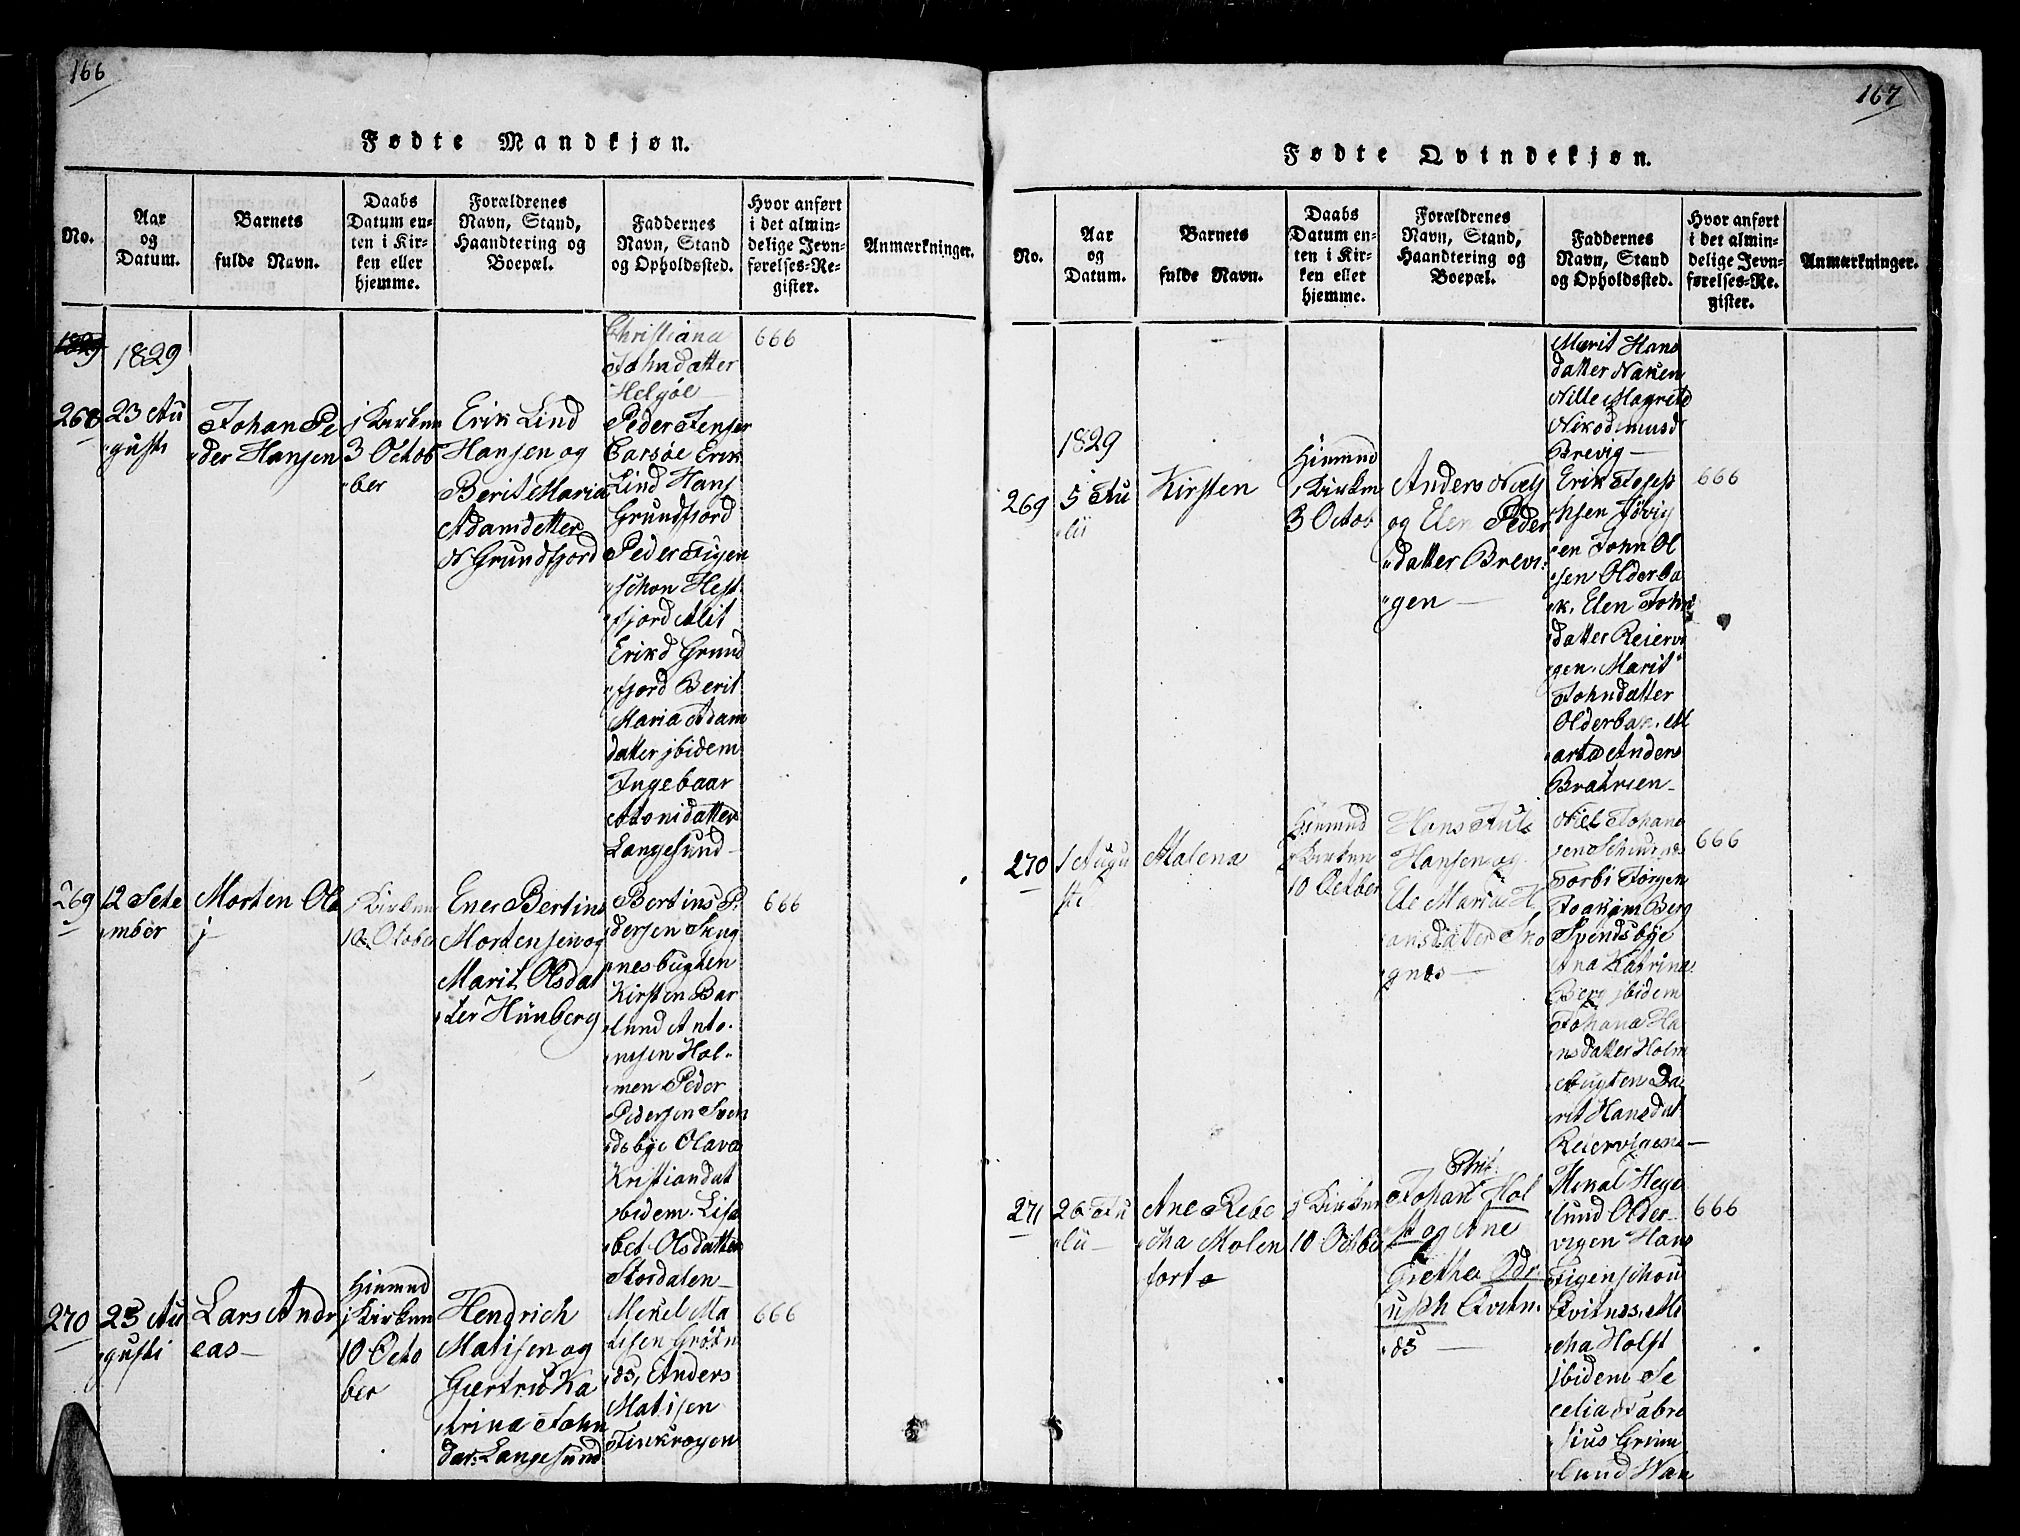 166
Fødte Mandkjøn.
No.
Aar
og
Datum.
Barnets
fulde Navn.
Daabs
Datum en-
ten i Kir-
ken eller
hjemme.
Forældrenes
Navn, Stand,
Haandtering og
Boepæl.
Faddernes
Navn, Stand
og Opholdssted.
Hvor anført
i det almin-
delige Jevn-
førelses-Re-
gister.
Anmærkninger.
1829
1829
Christiana
Johndatter
Helgøe
666
268
23 Au
gusti
Johan Pe
der Hansen
j Kirken
3 Octob
ber
Erik Lind
Hansen og
Berit Maria
Adamdatter
N Grundfjord
Peder Jenser
Carsøe Erik
Lind Hans
Grundfjord
Peder Figen
schou Hest
fjord Alit
Erikd Grund
fjord Berit
Maria Adam
datter jbidem
Ingebaar
Antonidatter
Langesund
269
12 Sete
mber
Morten Ola
j
j Kirken
10 Octobe
Ener Bertins
Mortensen og
Marit Olsdat
ter Hünberg
Bertins P
dersen Snug
nesbugten
Kirsten Bar
lund Anto
nisen Hol-
men Peder
Pedersen Sven
dsbye Olava
Kristiandat
jbidem. Lisa
bet Olsdatter
Stordalen
666
270
23 Au
gusti
Lars Andr
eas
Hiemnd
j Kirken
10 Octo
ber
Hendrich
Matisen og
Giertru Ka
trina John
dat: Langesund
Mekel Ma
tisen Grötn
æs, Anders
Matisen
Finkrogen
666
167
Fødte Qvindekjøn.
No.
Aar
og
Datum.
Barnets
fulde Navn.
Daabs
Datum en-
ten i Kir-
ken eller
hjemme.
Forældrenes
Navn, Stand,
Haandtering og
Boepæl.
Faddernes
Navn, Stand
og Opholdssted.
Hvor anført
i det almin-
delige Jevn-
førelses-Re-
gister.
Anmærkninger.
Marit Hans
datter Naken
Nille Magrete
Nikodemusd
Brevig
269
1829
5 Au
lii
Kirsten
Hiemnd
j Kirken
3 Octob
Anders Niels
og Elen Peder
datter Brevi
gen
Erik Josep
hsen Jövig
en John Ol
sen Olderba
k. Elen John
datter Reiervi
gen. Marit
Johndatter
Olderbak. M
arta Anders
Bratrien
666
270
1 Augu
sti
Malena
Hiemnd
j Kirken
10 Octber
Hans Juls
Hansen og
Ele Maria H
ansdatter Sno
gnæs
Niels Johan
sen Schurnæs
Torbi Jörgen
Joakim Berg
Svendsbye
Ana Katrina
Berg jbidem
Johana Ha
nsdatter Holm
ebugten Ba
rit Hansdat
Reiervigen
666
271
26 Ju
lii
Ane Rebe
cha Molen
forte
j Kirken
10 Octbe
Chris.
Johan Hol
st og Ane
Gretha Odr
usch Qvitn
æs
Mekal Hege
lund Older
vigen Hans
Figenschou
Qvitnes. Mi
cha Holst
jbidem Se
celia Fabre
sius Grünn
lund Wan
666